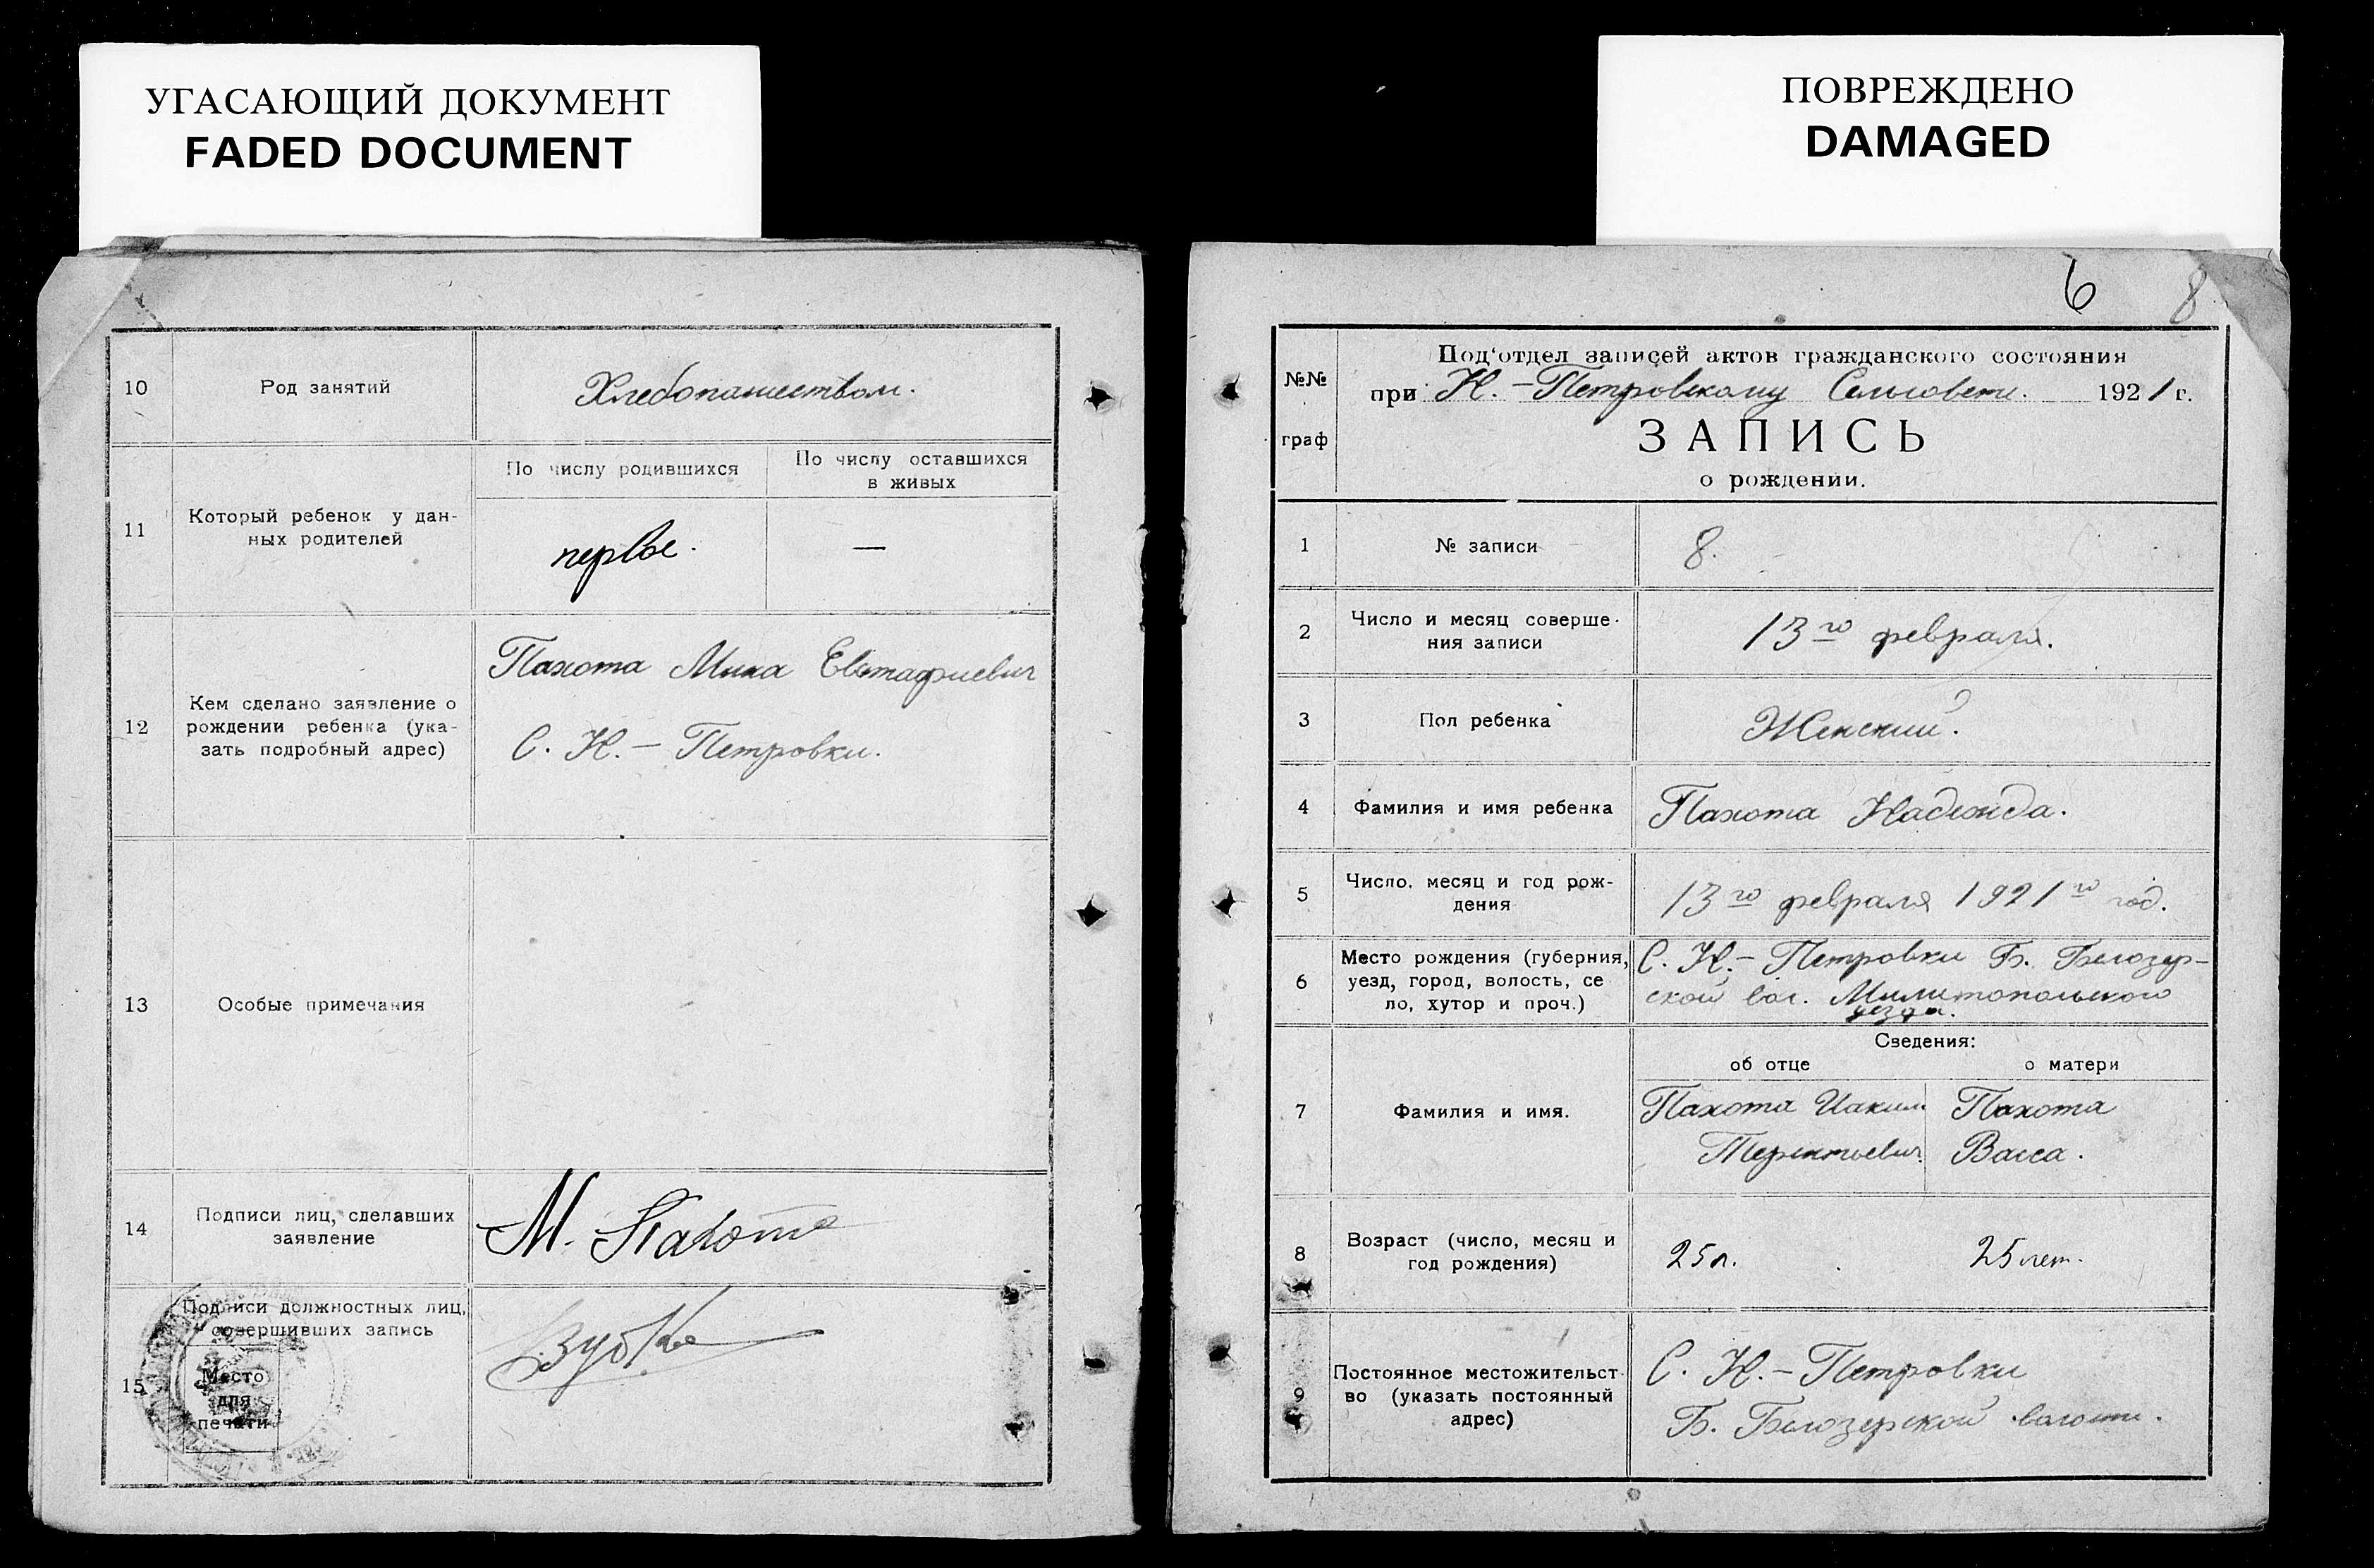 УГАСАЮЩИЙ ДОКУМЕНТ
FADED DOCUMENT
ПОВРЕЖДЕНО
DAMAGED
10
Род занятий
Хлебопашеством.
11
Который ребенок у дан-
ных родителей
По числу родившихся
По числу оставшихся
в живых
первое.
—
12
Кем сделано заявление о
рождении ребенка (ука-
зать подробный адрес)
Пахота Мина Евстафиевич
С. Н.– Петровки.
13
Особые примечания
14
Подписи лиц, сделавших
заявление
М. Пахота
15
Подписи должностных лиц,
совершивших запись
Место
для
печати
Зубко
6 8
№№
граф
Под'отдел записей актов гражданского состояния
при Н.–Петровскому Сельсовете. 1921 г.
ЗАПИСЬ
о рождении.
1
№ записи
8.
2
Число и месяц соверше-
ния записи
13го февраля.
3
Пол ребенка
Женский.
4
Фамилия и имя ребенка
Пахота Надежда.
5
Число, месяц и год рож-
дения
13го февраля 1921го год.
6
Место рождения (губерния,
уезд, город, волость, се
ло, хутор и проч.)
С. Н.– Петровки Б. Белозер-
ской вол. Мелитопольского
уезда.
Сведения:
об отце
о матери
7
Фамилия и имя.
Пахота Иаким
Терентьевич
Пахота
Васса.
8
Возраст (число, месяц и
год рождения)
25 л.
25 лет.
9
Постоянное местожительст
во (указать постоянный
адрес)
С. Н.– Петровки
Б. Белозерской волости.